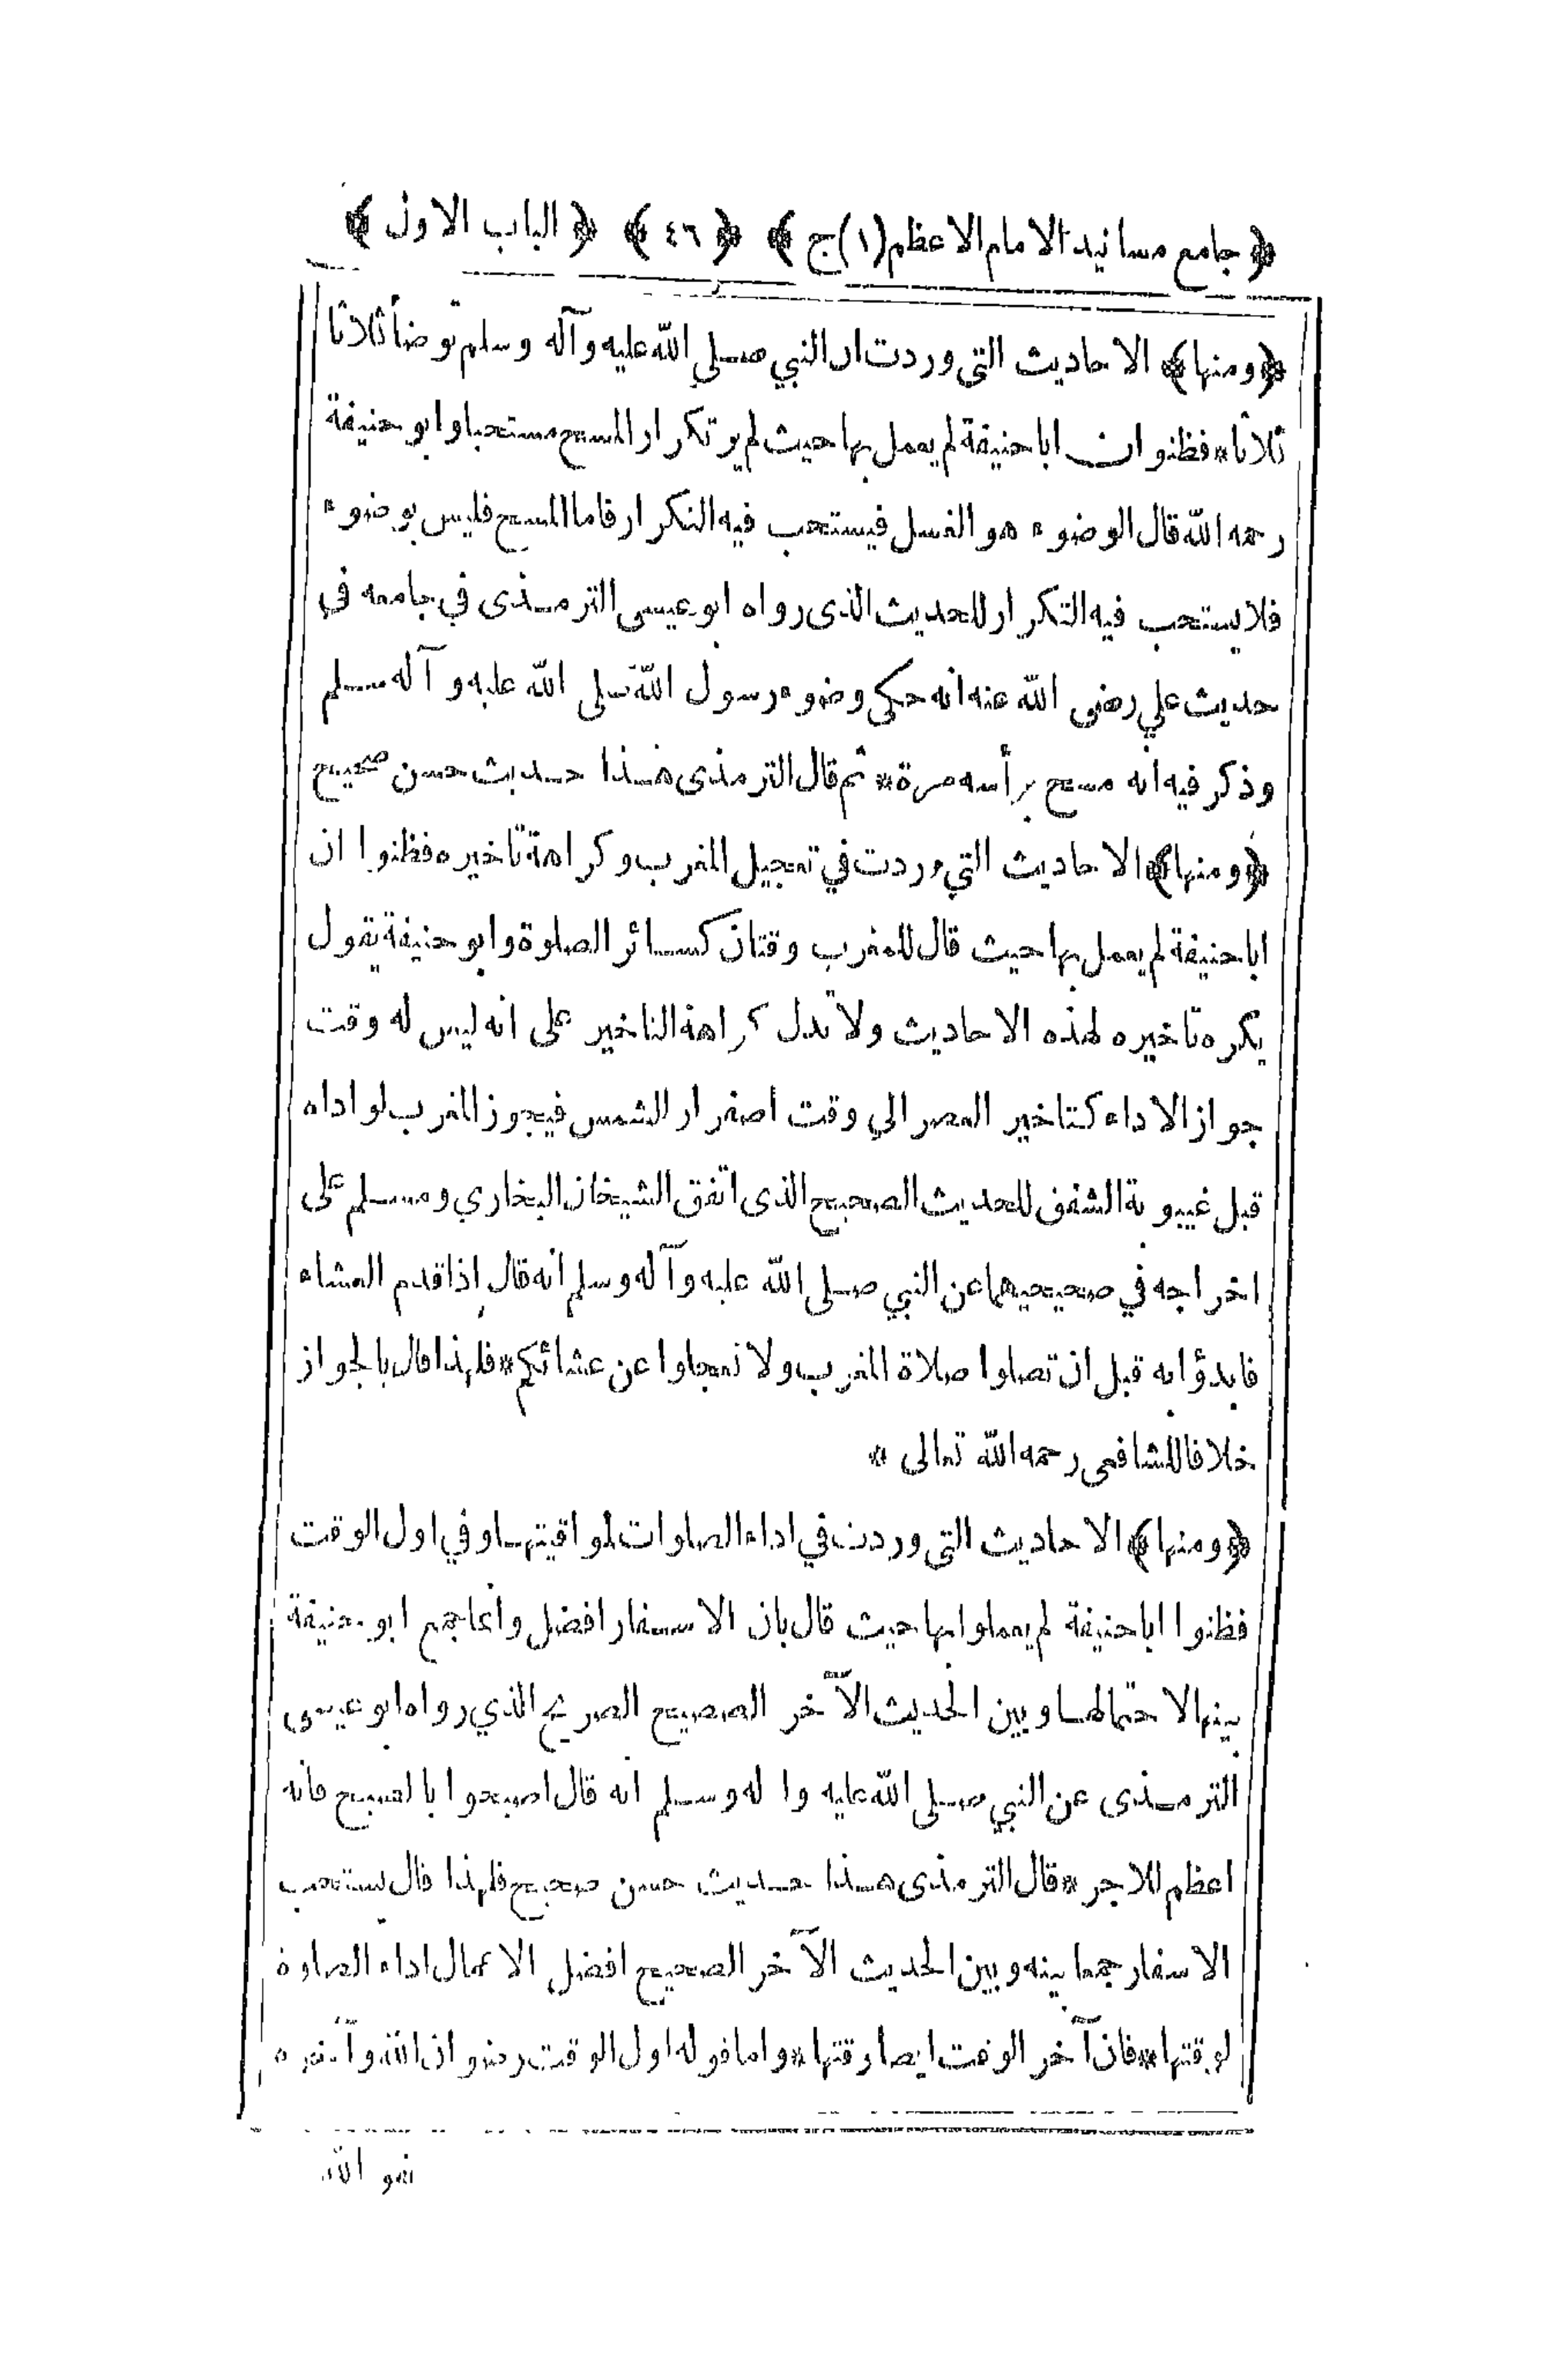 ﴿ جامع مسانيد الامام الاعظم (١) ج ﴾ ﴿ ٤٦ ﴾ ﴿ الباب الاول ﴾
﴿ ومنها ﴾ الاحاديث التي وردت ان النبي صلى الله عليه وآله وسلم توضأ ثلاثا
ثلاثا * فظنوا ان اباحنيفة لم يعمل بها حيث لم ير تكرار المسح مستحبا وابو حنيفة
رحمه الله قال الوضوء هو الغسل فيستحب فيه التكرار فاما المسح فليس بوضوء
فلا يستحب فيه التكرار للحديث الذى رواه ابو عيسى الترمذى في جامعه في
حديث علي رضى الله عنه انه حكى وضوء رسول الله صلى الله عليه وآله سلم
وذكر فيه انه مسح برأسه مرة * ثم قال الترمذى هذا حديث حسن صحيح
﴿ ومنها ﴾ الاحاديث التي وردت في تعجيل المغرب وكراهة تاخيره فظنوا ان
اباحنيفة لم يعمل بها حيث قال للمغرب وقتان كسائر الصلوة وابو حنيفة يقول
يكره تاخيره لهذه الاحاديث ولا تدل كراهة التاخير على انه ليس له وقت
جواز الاداء كتاخير العصر الي وقت اصفرار الشمس فيجوز المغرب لو اداه
قبل غيبوبة الشفق للحديث الصحيح الذى اتفق الشيخان البخاري ومسلم على
اخراجه في صحيحيهما عن النبي صلى الله عليه وآله وسلم انه قال اذا قدم العشاء
فابدؤا به قبل ان تصلوا صلاة المغرب ولا تعجلوا عن عشائكم * فلهذا قال بالجواز
خلافا للشافعى رحمه الله تعالى *
﴿ ومنها ﴾ الاحاديث التي وردت في اداء الصلوات لمواقيتها وفي اول الوقت
فظنوا اباحنيفة لم يعملوا بها حيث قال بان الاسفار افضل وانما جمع ابو حنيفة
بينها لاحتمالها وبين الحديث الآخر الصحيح الصريح الذي رواه ابو عيسى
الترمذى عن النبي صلى الله عليه واله وسلم انه قال اصبحوا بالصبح فانه
اعظم للاجر * قال الترمذى هذا حديث حسن صحيح فلهذا قال يستحب
الاسفار جمعا بينه وبين الحديث الآخر الصحيح افضل الاعمال اداء الصلوة
لوقتها * فان آخر الوقت ايضا وقتها * واما قوله اول الوقت رضوان الله وآخره
عفو الله